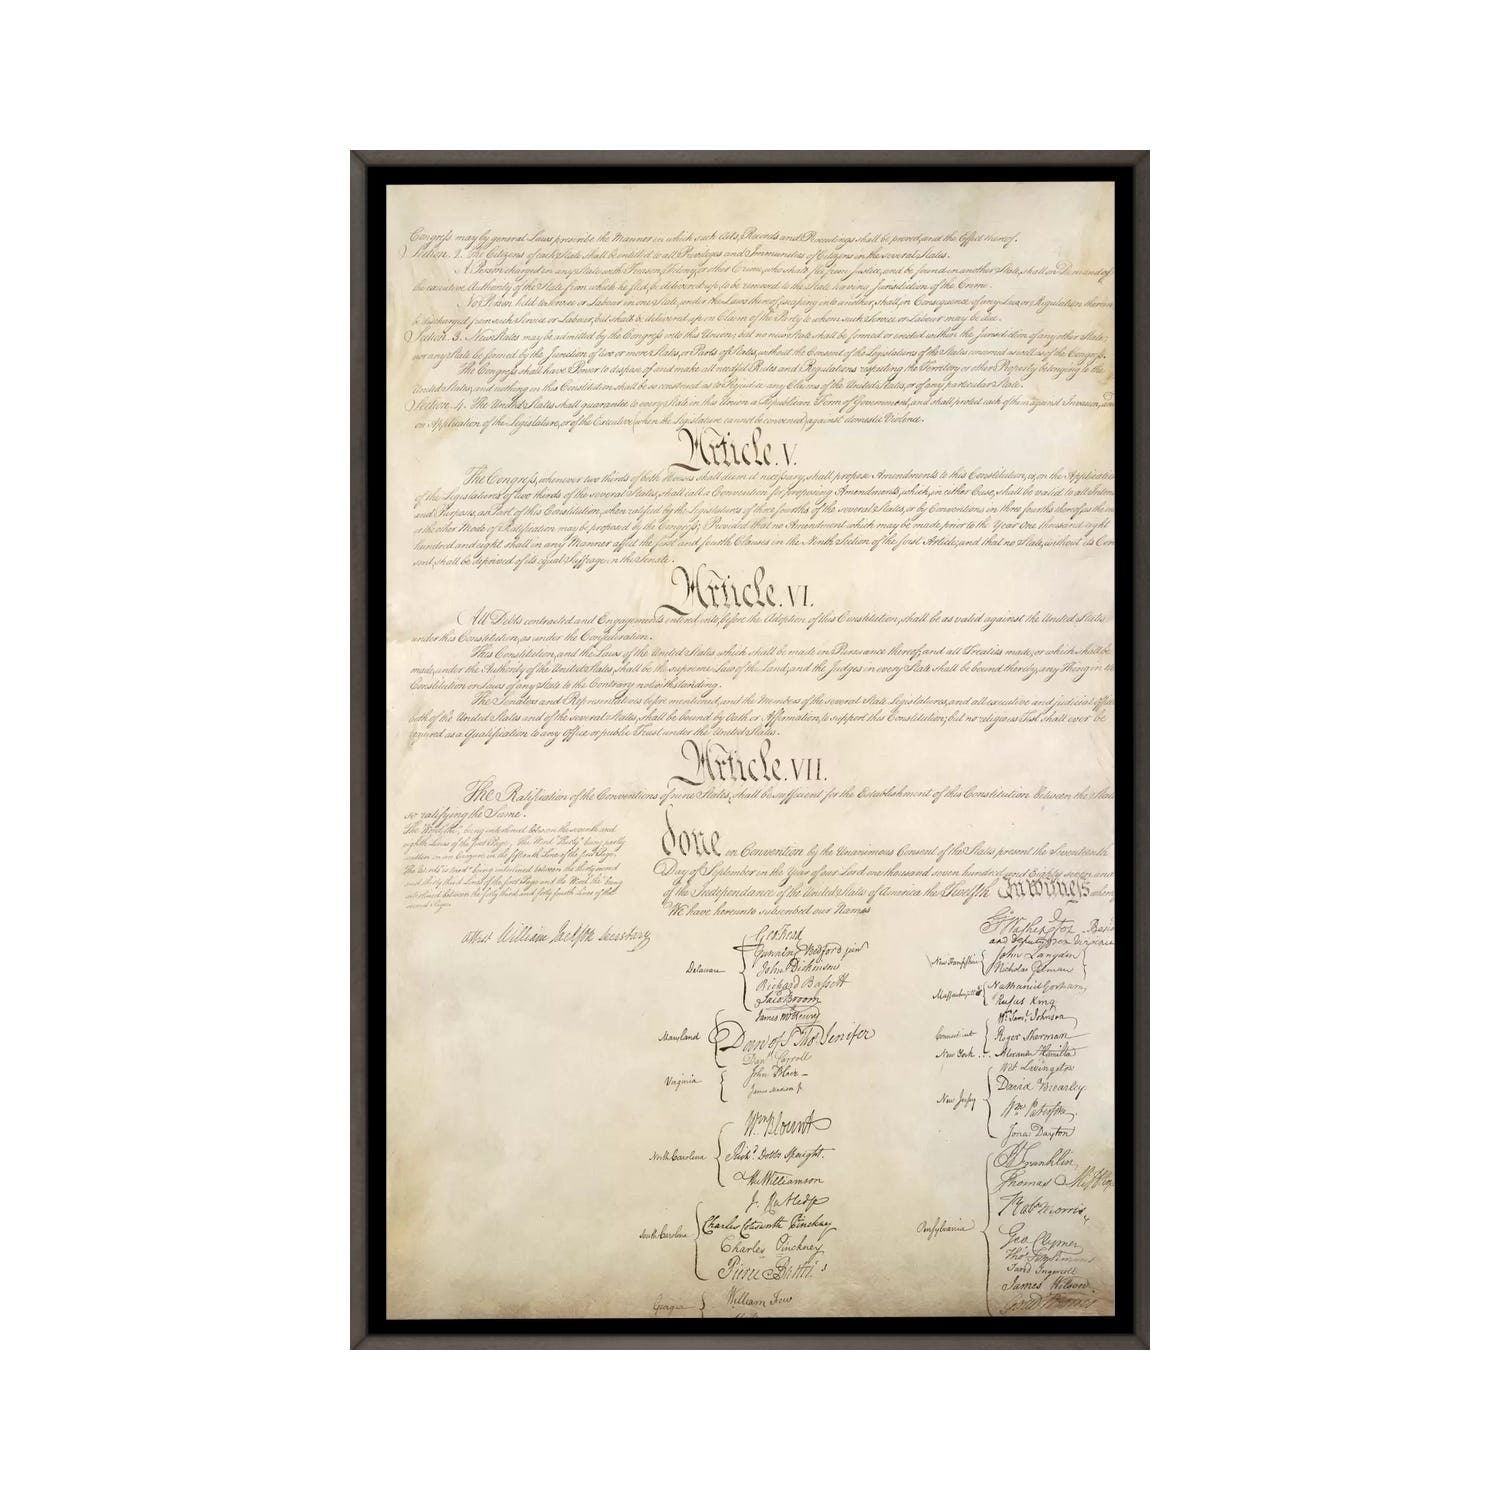 Congress may by general Laws prescribe the Manner in which such Acts, Records and Proceedings shall be proved, and the Effect thereof.
Section. 2. The Citizens of each State shall be entitled to all Privileges and Immunities of Citizens in the several States.
A Person charged in any State with Treason, Felony, or other Crime, who shall flee from Justice, and be found in another State, shall on Demand of
the executive Authority of the State from which he fled, be delivered up, to be removed to the State having Jurisdiction of the Crime.
No Person held to Service or Labour in one State, under the Laws thereof, escaping into another, shall, in Consequence of any Law or Regulation therein
be discharged from such Service or Labour, but shall be delivered up on Claim of the Party to whom such Service or Labour may be due.
Section. 3. New States may be admitted by the Congress into this Union; but no new State shall be formed or erected within the Jurisdiction of any other State;
nor any State be formed by the Junction of two or more States, or Parts of States, without the Consent of the Legislatures of the States concerned as well as of the Congress.
The Congress shall have Power to dispose of and make all needful Rules and Regulations respecting the Territory or other Property belonging to the
United States; and nothing in this Constitution shall be so construed as to Prejudice any Claims of the United States, or of any particular State.
Section. 4. The United States shall guarantee to every State in this Union a Republican Form of Government, and shall protect each of them against Invasion; and
on Application of the Legislature, or of the Executive (when the Legislature cannot be convened) against domestic Violence.
Article. V.
The Congress, whenever two thirds of both Houses shall deem it necessary, shall propose Amendments to this Constitution, or, on the Applicatio
of the Legislatures of two thirds of the several States, shall call a Convention for proposing Amendments, which, in either Case, shall be valid to all Intents
and Purposes, as Part of this Constitution, when ratified by the Legislatures of three fourths of the several States, or by Conventions in three fourths thereof, as the one
or the other Mode of Ratification may be proposed by the Congress; Provided that no Amendment which may be made prior to the Year One thousand eight
hundred and eight shall in any Manner affect the first and fourth Clauses in the Ninth Section of the first Article; and that no State, without its Con
sent, shall be deprived of its equal Suffrage in the Senate.
Article. VI.
All Debts contracted and Engagements entered into, before the Adoption of this Constitution, shall be as valid against the United States
under this Constitution, as under the Confederation.
This Constitution, and the Laws of the United States which shall be made in Pursuance thereof; and all Treaties made, or which shall be
made, under the Authority of the United States, shall be the supreme Law of the Land; and the Judges in every State shall be bound thereby, any Thing in the
Constitution or Laws of any State to the Contrary notwithstanding.
The Senators and Representatives before mentioned, and the Members of the several State Legislatures, and all executive and judicial offic
both of the United States and of the several States, shall be bound by Oath or Affirmation, to support this Constitution; but no religious Test shall ever be
required as a Qualification to any Office or public Trust under the United States.
Article. VII.
The Ratification of the Conventions of nine States, shall be sufficient for the Establishment of this Constitution between the State
so ratifying the Same.
The Word, the, being interlined between the seventh and
eighth Lines of the first Page, The Word "Thirty" being partly
written on an Erazure in the fifteenth Line of the first Page,
The Words "is tried" being interlined between the thirty second
and thirty third Lines of the first Page and the Word "the" being
interlined between the forty third and forty fourth Lines of the
second Page.
Attest William Jackson Secretary
done in Convention by the Unanimous Consent of the States present the Seventeenth
Day of September in the Year of our Lord one thousand seven hundred and Eighty seven and
of the Independance of the United States of America the Twelfth In Witness whereof
We have hereunto subscribed our Names
Go. Washington Presid
and deputy from Virginia
Delaware
Geo: Read
Gunning Bedford jun
John Dickinson
Richard Bassett
Jaco: Broom
Maryland
James McHenry
Dan of St Thos Jenifer
Danl Carroll
Virginia
John Blair
James Madison Jr
North Carolina
Wm Blount
Richd Dobbs Spaight.
Hu Williamson
South Carolina
J. Rutledge
Charles Cotesworth Pinckney
Charles Pinckney
Pierce Butler
Georgia
William Few
New Hampshire
John Langdon
Nicholas Gilman
Massachusetts
Nathaniel Gorham
Rufus King
Connecticut
Wm Saml Johnson
Roger Sherman
New York ...
Alexander Hamilton
New Jersey
Wil: Livingston
David Brearley
Wm Paterson
Jona: Dayton
Pensylvania
B Franklin
Thomas Mifflin
Robt Morris
Geo. Clymer
Thos FitzSimons
Jared Ingersoll
James Wilson
Gouv Morris